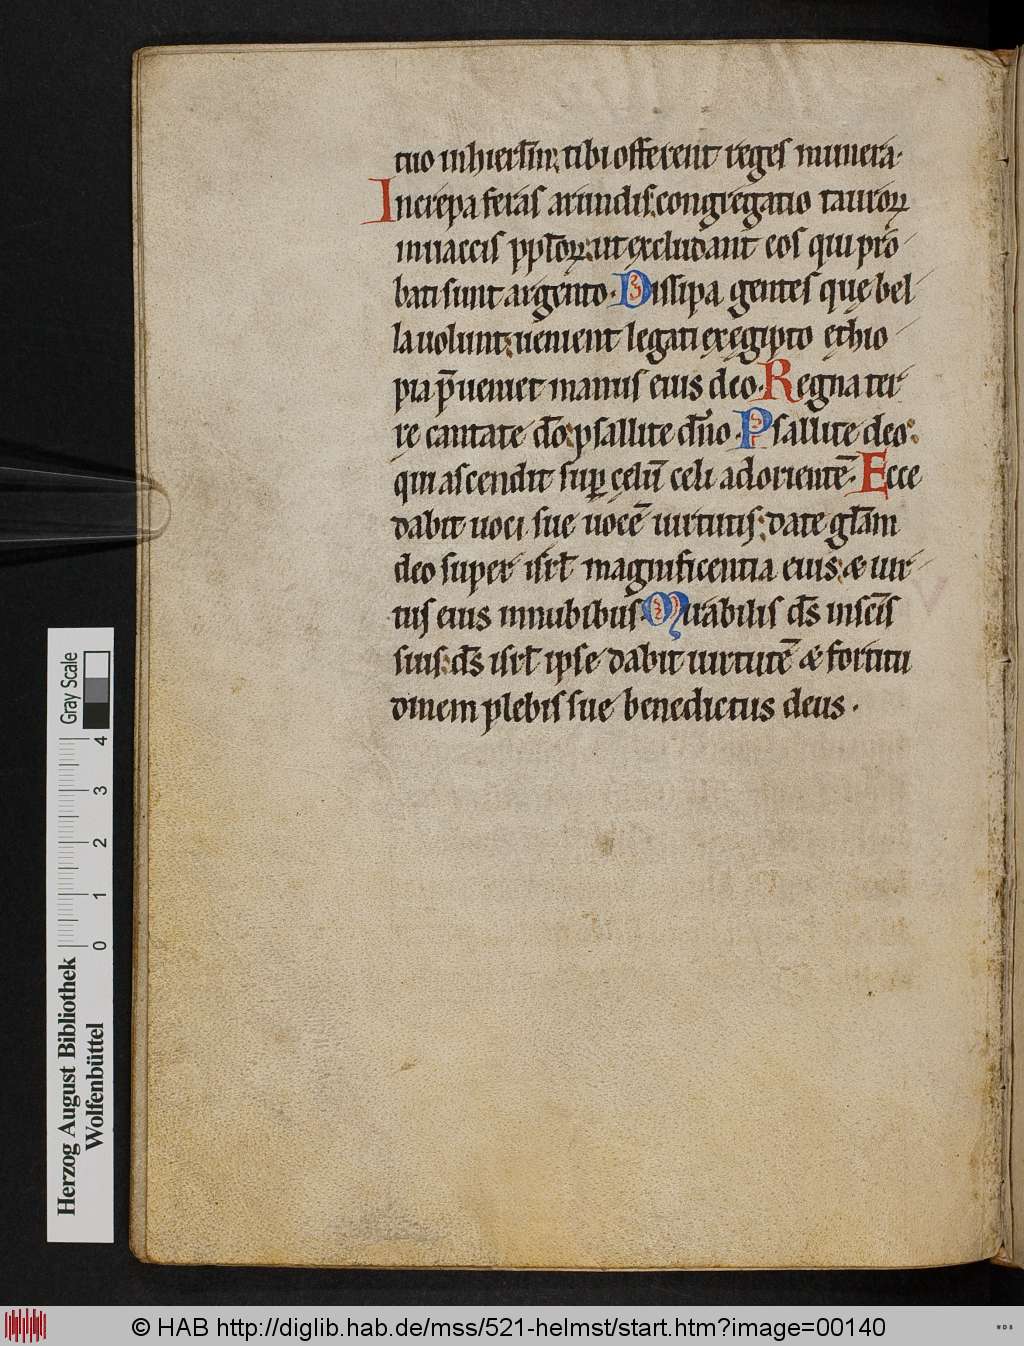 tuo inhierłm; tibi offerent reges munera.
Increpa feras arundis; congregatio tauroꝝ
inuaccis pp̄loꝝ; ut excludant eos qui pro-
bati sunt argento. Dissipa gentes quę bel-
la uolunt; uenient legati ex egipto ęthio-
pia p̄ueniet manus eius deo. Regna ter-
rę cantate dō; psallite dn̄o. Psallite deo;
qui ascendit sup̱ cęlū celi ad orientē. Ecce
dabit uoci sue uocē uirtutis; date głam
deo super isrł magnificentia eius; & uir-
tus eius innubibus. Mirabilis ds̄ insc̄is
suis; ds̄ isrł ipse dabit uirtutē & fortitu
dinem plebis sue benedictus deus.
Gray Scale
4
3
2
1
0
Herzog August Bibliothek
Wolfenbüttel
© HAB http://diglib.hab.de/mss/521-helmst/start.htm?image=00140
WDB